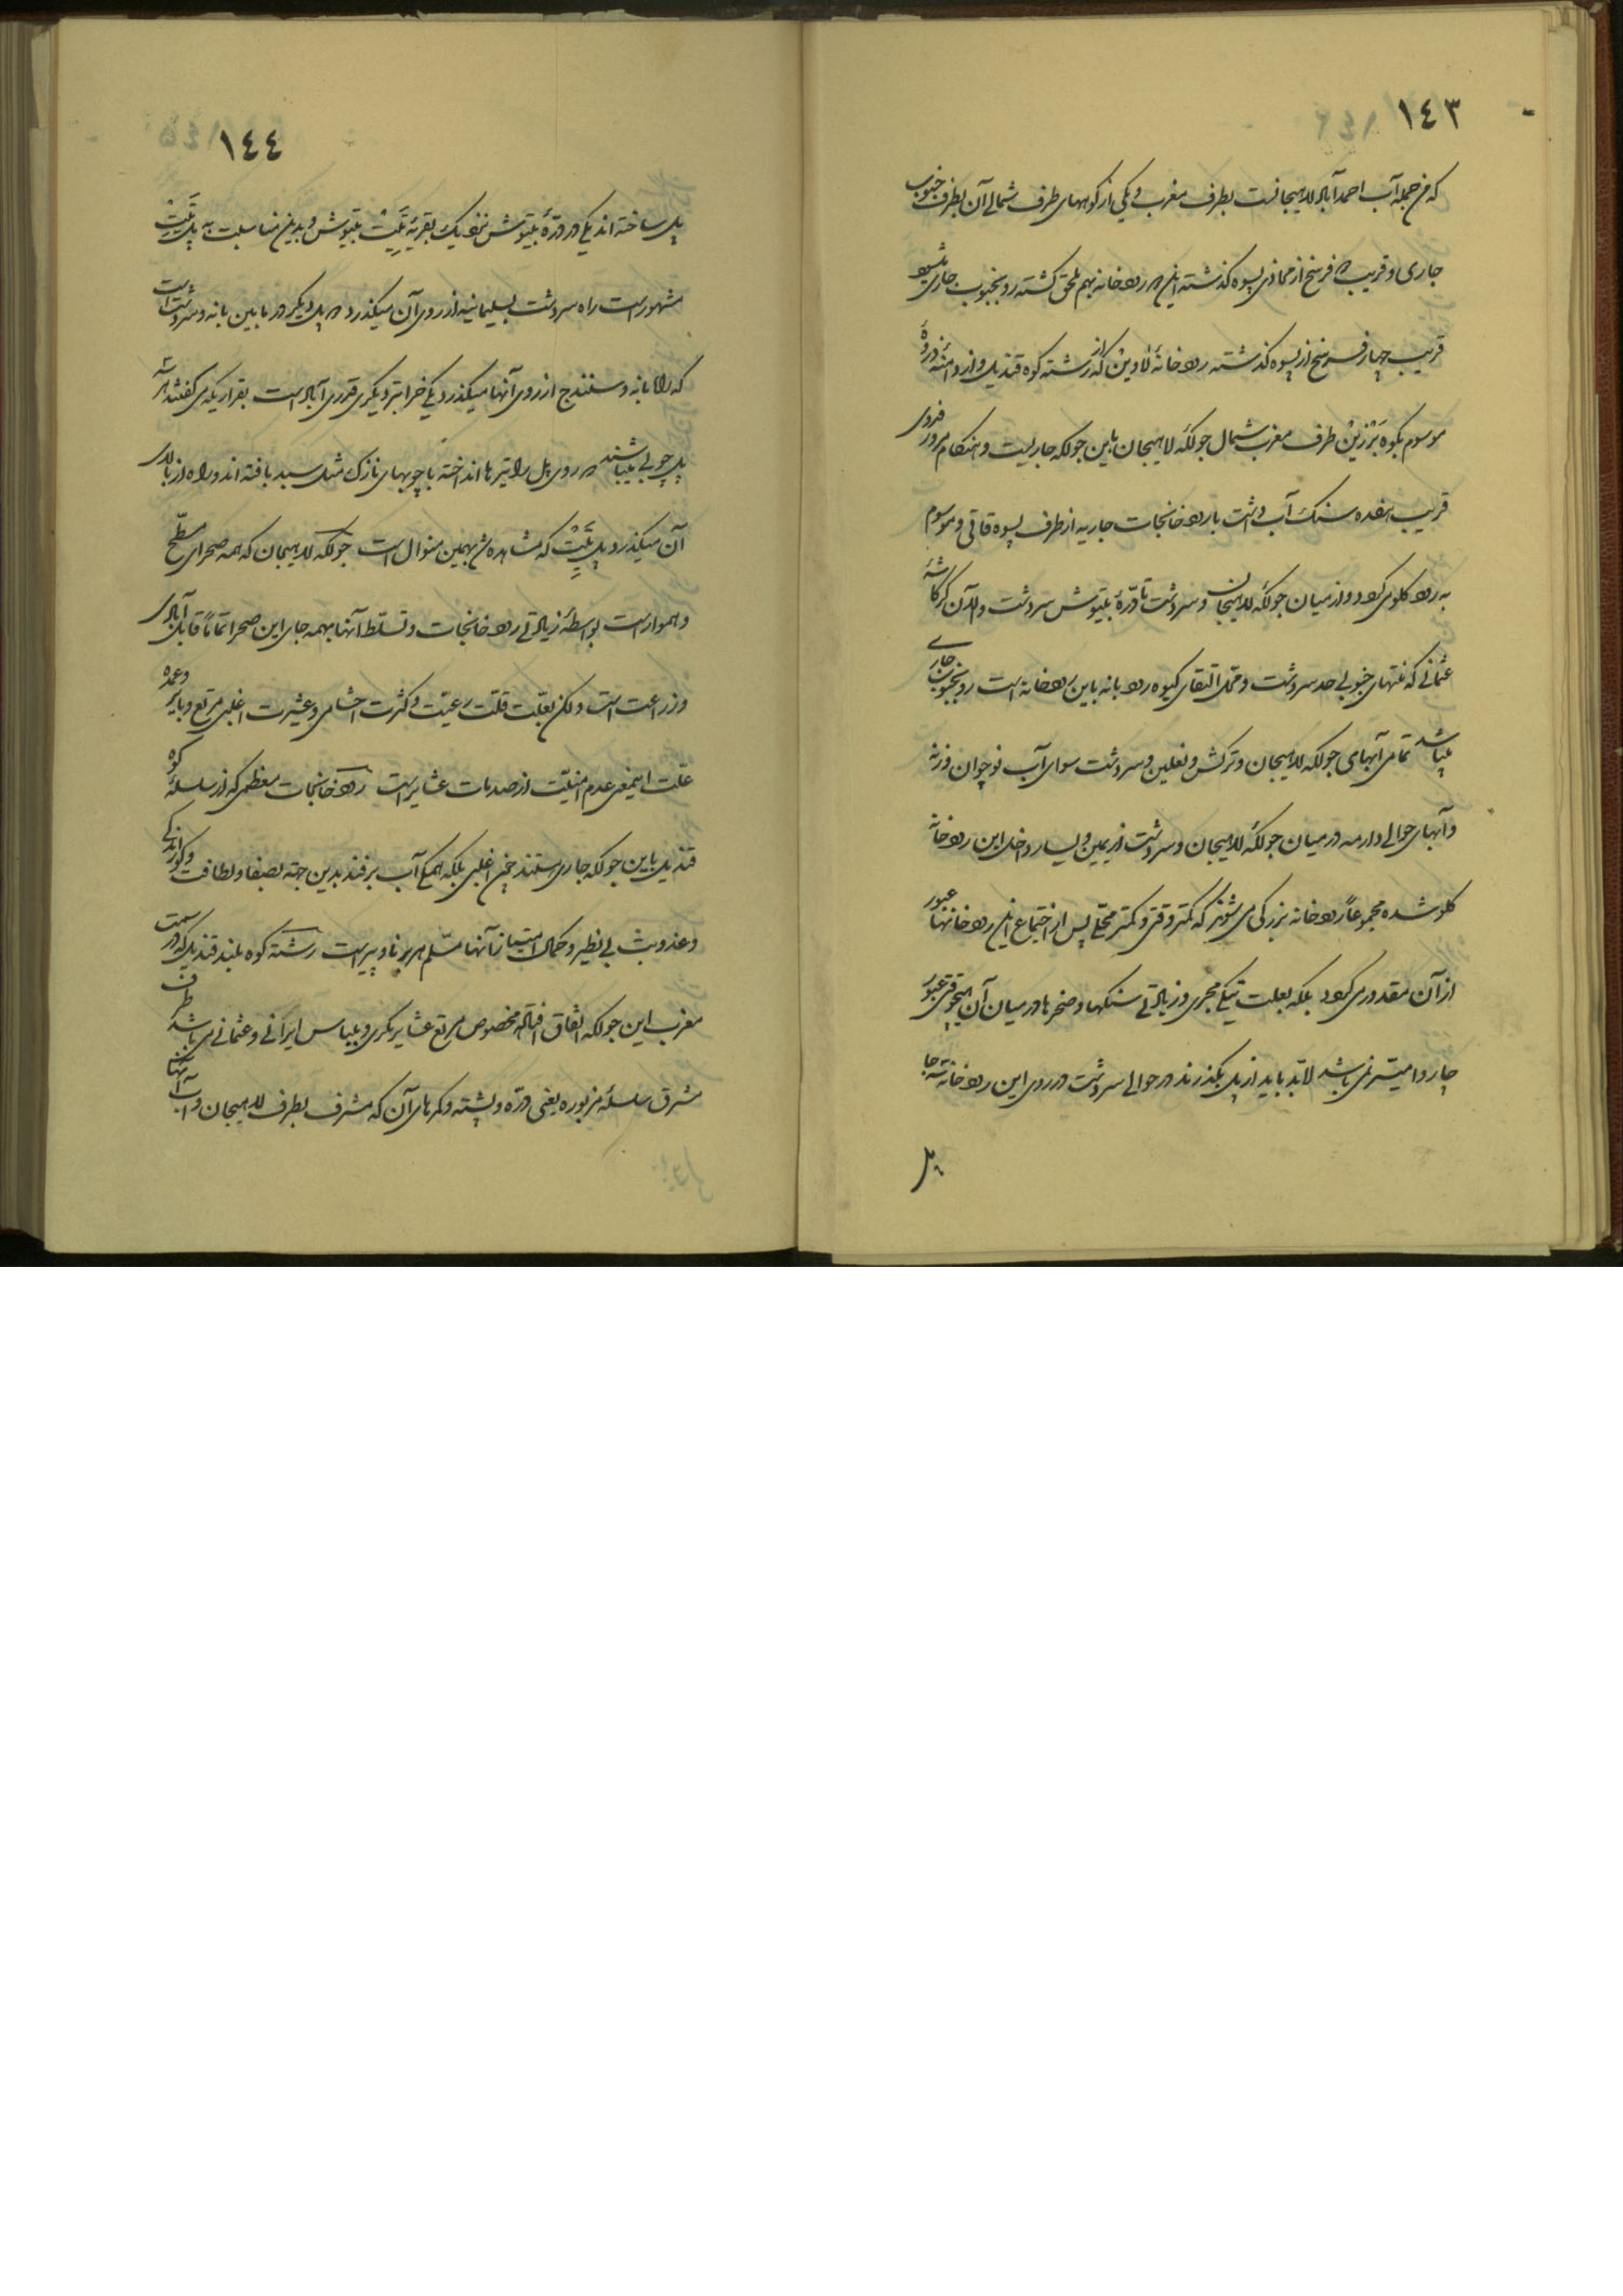 ١٤٣
که من جمله آب احمدآباد لاهیجانست بطرف مغرب و یکی از کوههای طرف شمالی آن بطرف جنوب
جاری و قریب فرسخ از محاذی پسوه گذشته این رودخانه بهم ملحق گشته رو بجنوب جاری میشود
قریب چهار فرسخ از پسوه گذشته رودخانهٔ لاوین که از رشته کوه قندیل و از دامنه و درهٔ
موسوم بکوه بَرْزین طرف مغرب شمال جولکه لاهیجان باین جولکه جاریست و هنگام مرور
قریب هفده سنک آب داشت با رودخانجات جاریه از طرف پسوه تلاقی و موسوم
به رود کلوی میگردد و از میان جولکه لاهیجان و سردشت تا درّهٔ بیتوش سردشت و
عثمانی که منتهای جنوبی حد سردشت و محل التقای رود بانه باین رودخانه است رو بجنوب جاری
میباشد تمامی آبهای جولکه لاهیجان و ترکش و نعلین و سردشت سوای آب
و آبهای حوالی در میان جولکهٔ لاهیجان و سردشت از یمین و یسار داخل این رودخانه
کلو شده مجموعاً رودخانه بزرکی می شوند که کمتر وقتی و کمتر محلّی پس از اجتماع این رودخانها عبور
از آن مقدور میگردد بلکه بعلت تنکی مجری و زیادتی سنکها و صخرها در میان آن هیچوقتی عبور
چاروا میسّر نمی باشد لابد باید از پل بگذرند در حوالی سردشت در روی این رودخانه سه جا
پل
١٤٤
پل ساخته اند یکی در درّهٔ بیتوش نزدیک بقریه بیتوش و بدین مناسبت به پل
مشهور است راه سردشت بسلیمانیه از روی آن میکذرد پل دیگر در مابین بانه و سردشت است
که راه بانه و سنندج از روی آنها میکذرد یکی خرابتر و دیگری قدری آباد است بقراریکه می گفتند هر سه
پل چوبی میباشند روی پل را تیرها انداخته با چوبهای نازک مثل سبد بافته اند و راه از بالای
آن میکذرد پل که مشاهده شد بهمین منوال است جولکه لاهیجان که همه صحرای مسطّح
و هموار است بواسطهٔ زیادتی رودخانجات و تسلط آنها بهمه جای این صحرا تماماً قابل آبادی
و زراعت است ولکن بعلّت قلت رعیت و کثرت احشامی و عشیرت اغلبی مرتع و بایر و عمده
علت اینمعنی عدم امنیّت از صدمات عشایر است رودخانجات معظمی که از سلسلهٔ کوه
قندیل باین جولکه جاری هستند چون اغلبی بلکه همگی آب برفند بدین جهة بصفا و لطافت و گوارندکی
و عذوبت بی نظیر و کمال امتیاز آنها مسلّم هر برنا و پیر است رشته کوه بلند قندیل که در سمت
مغرب این جولکه اتفاق افتاده مخصوص مرتع عشایر مکری و بلباس ایرانی و عثمانی می باشد طرف
مشرق سلسلهٔ مزبوره یعنی درّه و پشته و کمرهای آن که مشرف بطرف لاهیجان و آب آنها